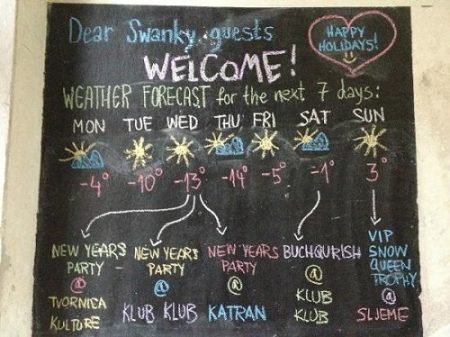 Dear Swanky guests
HAPPY
HOLIDAYS!
WELCOME!
WEATHER FORECAST for the next 7 days:
MON TUE WED THU FRI SAT SUN
-4° -10° -13° -14° -5° -1° 3°
NEW YEARS
PARTY
@
TVORNICA
KULTURE
NEW YEARS
PARTY
@
KLUB KLUB
NEW YEARS
PARTY
@
KATRAN
BUCHQURISH
@
KLUB
KLUB
VIP
SNOW
QUEEN
TROPHY
@
SLJEME